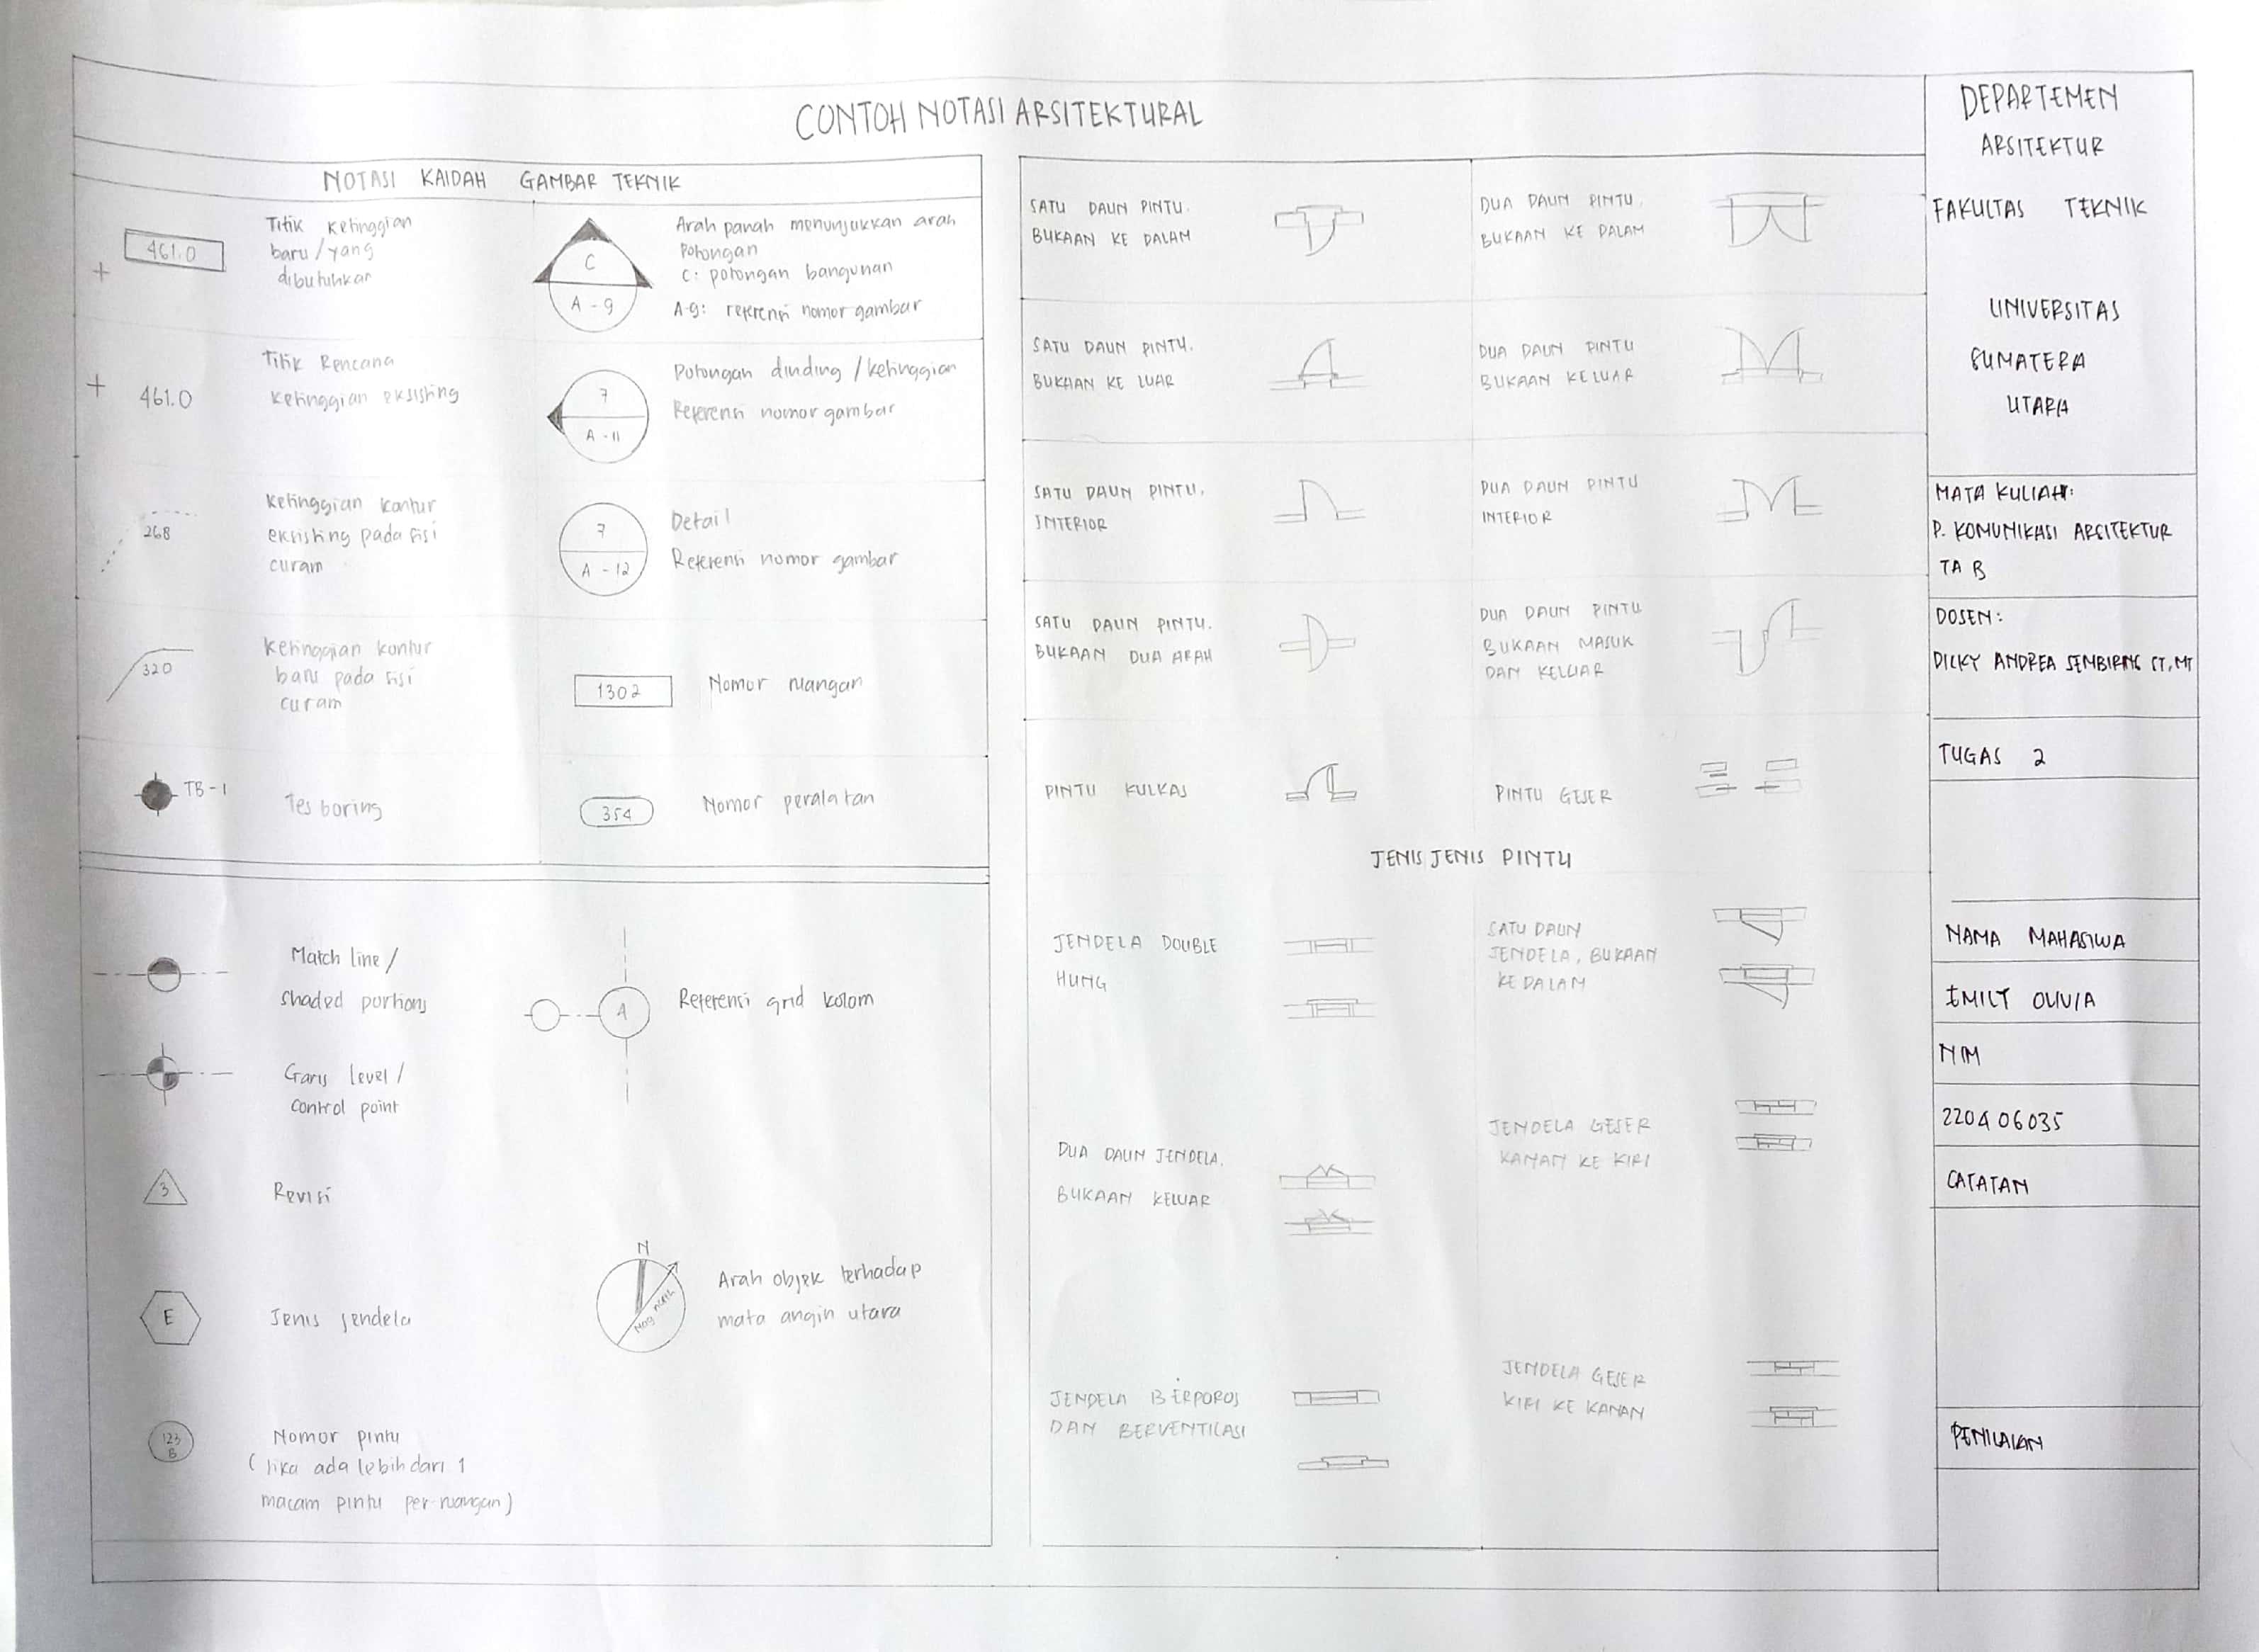 CONTOH NOTASI ARSITEKTURAL
NOTASI KAIDAH GAMBAR TEKNIK
+ 461.0
Titik Ketinggian
baru/yang
dibutuhkan
C
A-9
Arah panah menunjukkan arah
Potongan
C: potongan bangunan
A-9: referensi nomor gambar
+ 461.0
Titik Rencana
Ketinggian eksisting
7
A-11
Potongan dinding/ketinggian
Referensi nomor gambar
268
Ketinggian kontur
eksisting pada sisi
curam
7
A-12
Detail
Referensi nomor gambar
320
Ketinggian kontur
baru pada sisi
curam
1302
Nomor ruangan
TB-1
Tes boring
354
Nomor peralatan
Match line/
shaded portions
A
Referensi grid kolom
Garis level/
Control point
3
Revisi
E
Jenis jendela
N
Mag north
Arah objek terhadap
mata angin utara
123
B
Nomor pintu
(Jika ada lebih dari 1
macam pintu per-ruangan)
SATU DAUN PINTU.
BUKAAN KE DALAM
DUA DAUN PINTU.
BUKAAN KE DALAM
SATU DAUN PINTU.
BUKAAN KE LUAR
DUA DAUN PINTU
BUKAAN KELUAR
SATU DAUN PINTU.
INTERIOR
DUA DAUN PINTU
INTERIOR
SATU DAUN PINTU.
BUKAAN DUA ARAH
DUA DAUN PINTU
BUKAAN MASUK
DAN KELUAR
PINTU KULKAS
PINTU GESER
JENIS JENIS PINTU
JENDELA DOUBLE
HUNG
SATU DAUN
JENDELA, BUKAAN
KEDALAM
DUA DAUN JENDELA.
BUKAAN KELUAR
JENDELA GESER
KANAN KE KIRI
JENDELA BERPOROS
DAN BERVENTILASI
JENDELA GESER
KIRI KE KANAN
DEPARTEMEN
ARSITEKTUR
FAKULTAS TEKNIK
UNIVERSITAS
SUMATERA
UTARA
MATA KULIAH:
P. KOMUNIKASI ARSITEKTUR
TA B
DOSEN:
DICKY ANDREA SEMBIRING ST,MT
TUGAS 2
NAMA MAHASIWA
EMILY OLIVIA
NIM
220406035
CATATAN
PENILAIAN